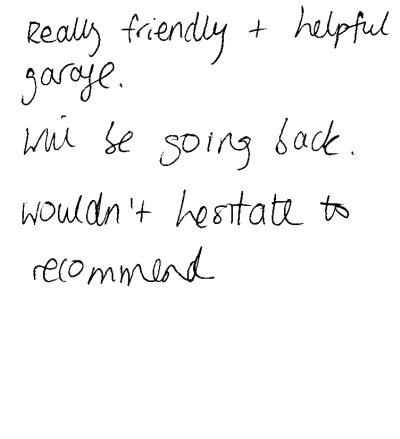 Really friendly + helpful
garage.
Will be going back.
Wouldn't hesitate to
recommend